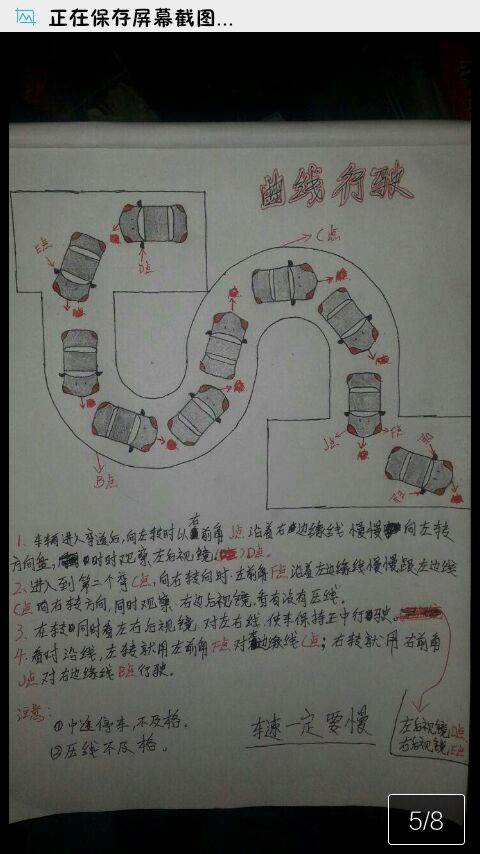 正在保存屏幕截图...
曲线行驶
C点
E点
D点
B点
J点
F点
右
1、车辆进入弯道后,向左转时以前角J点沿着右边缘线慢慢向左转
方向盘,时时观察左后视镜。D点。
2、进入到第二个弯C点,向右转向时.左前角F点沿着左边缘线慢慢跟左边线
C点向右转方向,同时观察.右边后视镜.看有没有压线。
3、在转时同时看左右后视镜,对左右线,使车保持正中行驶。
4、看对沿线,左转就用左前角F点对边缘线C点;右转就用右前角
J点对右边缘线B点行驶。
注意:
①中途停车,不及格.
②压线不及格。
车速一定要慢
左后视镜D点
右后视镜E点
5/8